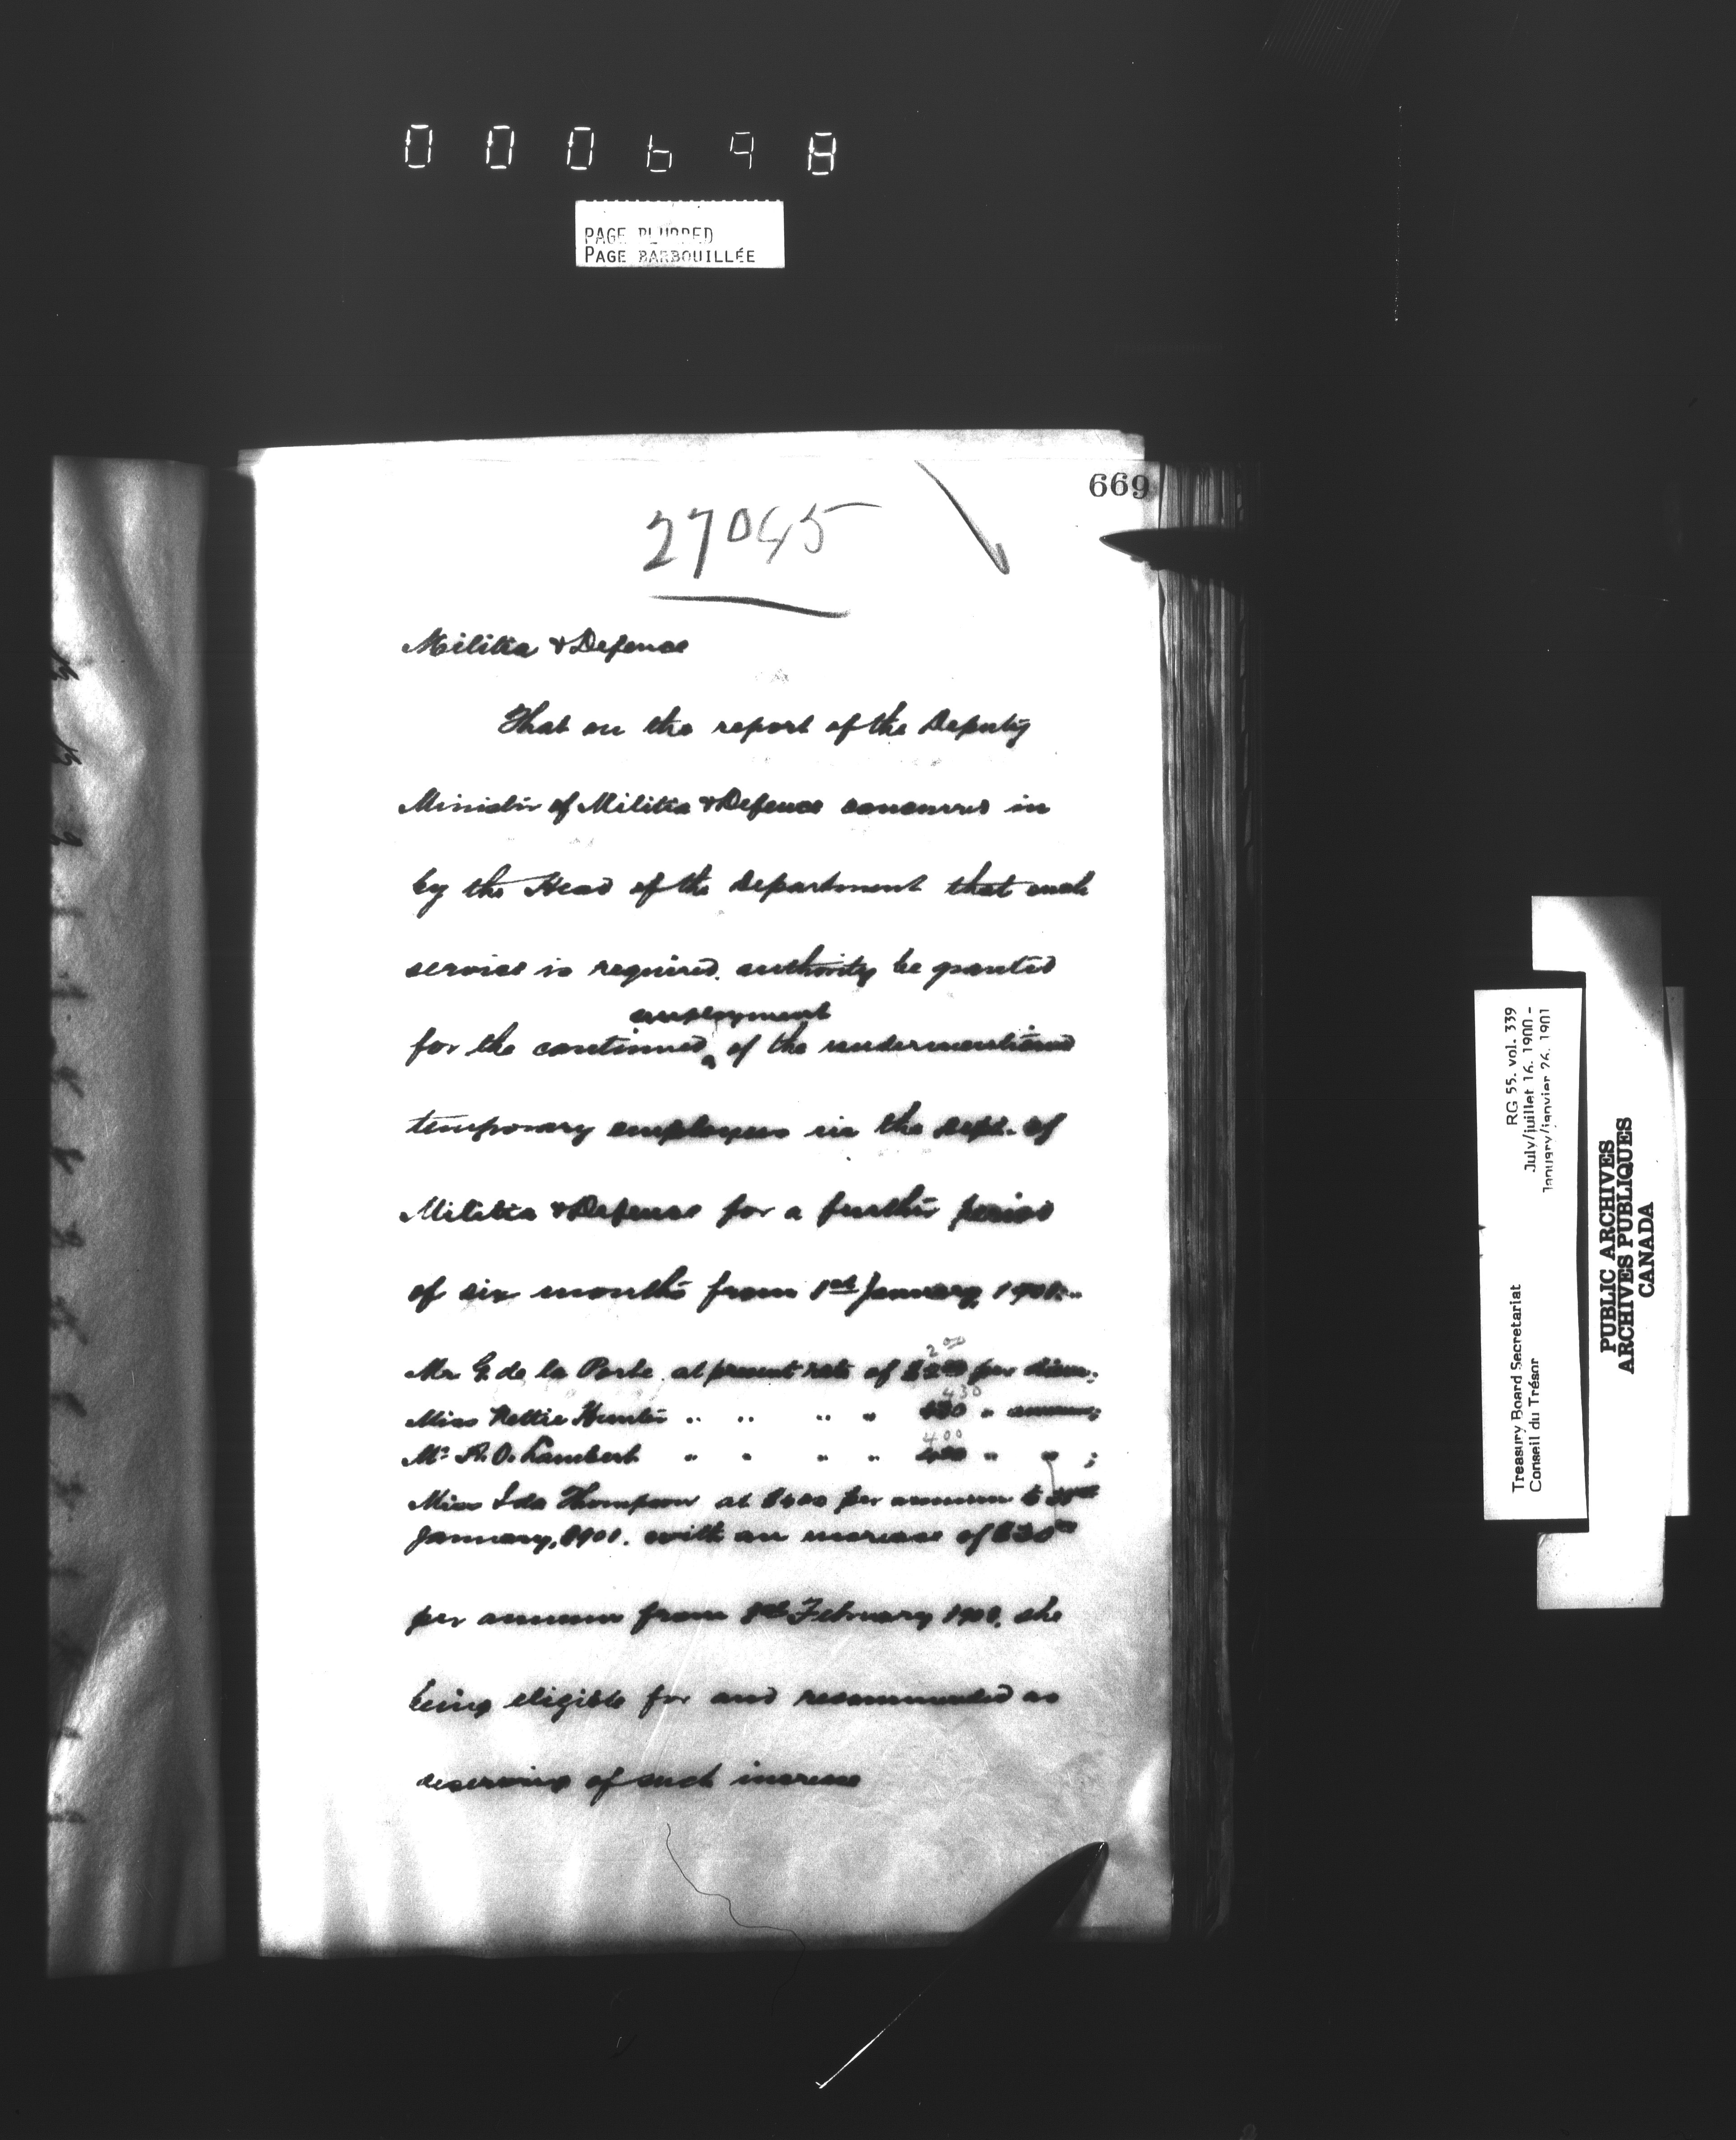 000698
PAGE BLURRED
PAGE BARBOUILLÉE
669
27045
Militia & Defence
That on the report of the Deputy
Minister of Militia & Defence concurred in
by the Head of the Department that such
service is required, authority be granted
employment
for the continued ‸ of the undermentioned
temporary employees in the Dept. of
Militia & Defence for a further period
of six months from 1st January, 1901:-
2 00
Mr G. de la Porte at present rate of $2.00 per diem;
430
Miss Nettie Hunter " " " " 430 " annum;
400
Mr R. O. Lambert " " " " 400 " " ;
Miss Ida Thompson at $400 per annum to 31st
January, 1901. with an increase of $30 00
per annum from 1st February 1901, she
being eligible for and recommended as
deserving of such increase
RG 55, vol. 339
July/juillet 16, 1900 -
January/janvier 26, 1901
Treasury Board Secretariat
Conseil du Trésor
PUBLIC ARCHIVES
ARCHIVES PUBLIQUES
CANADA